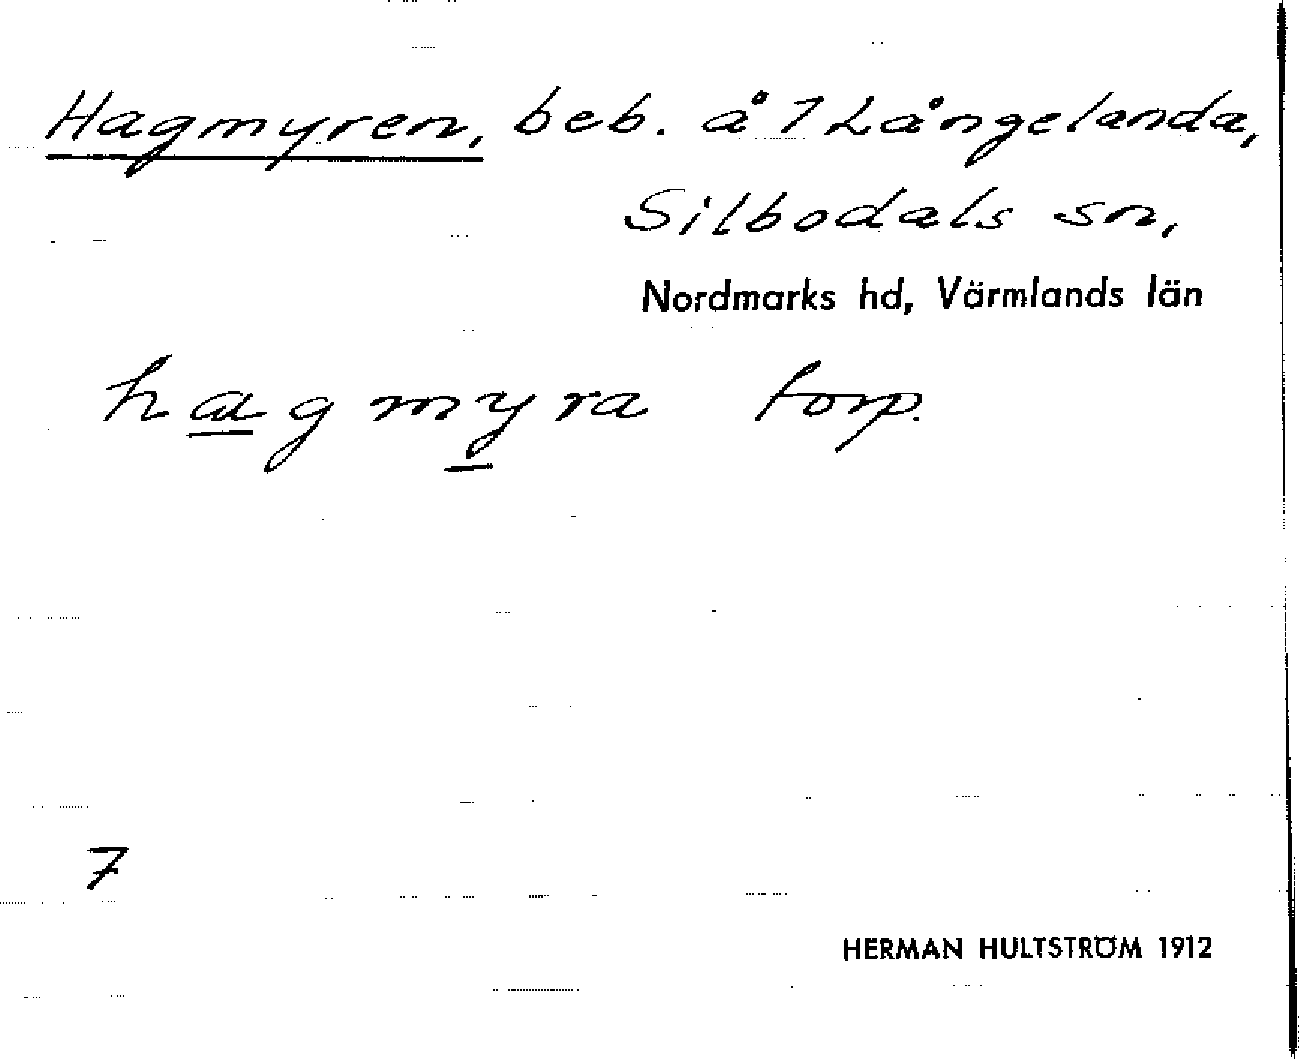 Hagmyren, beb. å 7 Långelanda,
Silbodals sn,
Nordmarks hd, Värmlands län
hagmyra torp.
7
HERMAN HULTSTRÖM 1912